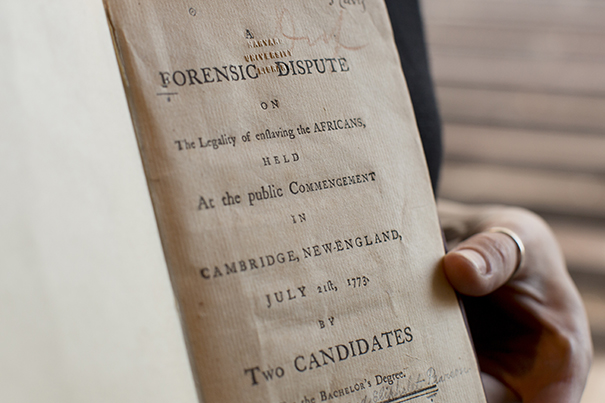 A
HARVARD
UNIVERSITY
LIBRARY
FORENSIC DISPUTE
ON
The Legality of enſlaving the AFRICANS,
HELD
At the public COMMENCEMENT
IN
CAMBRIDGE, NEW-ENGLAND,
JULY 21ſt, 1773.
BY
TWO CANDIDATES
the BACHELOR's Degree.
Eliphalet Pearson